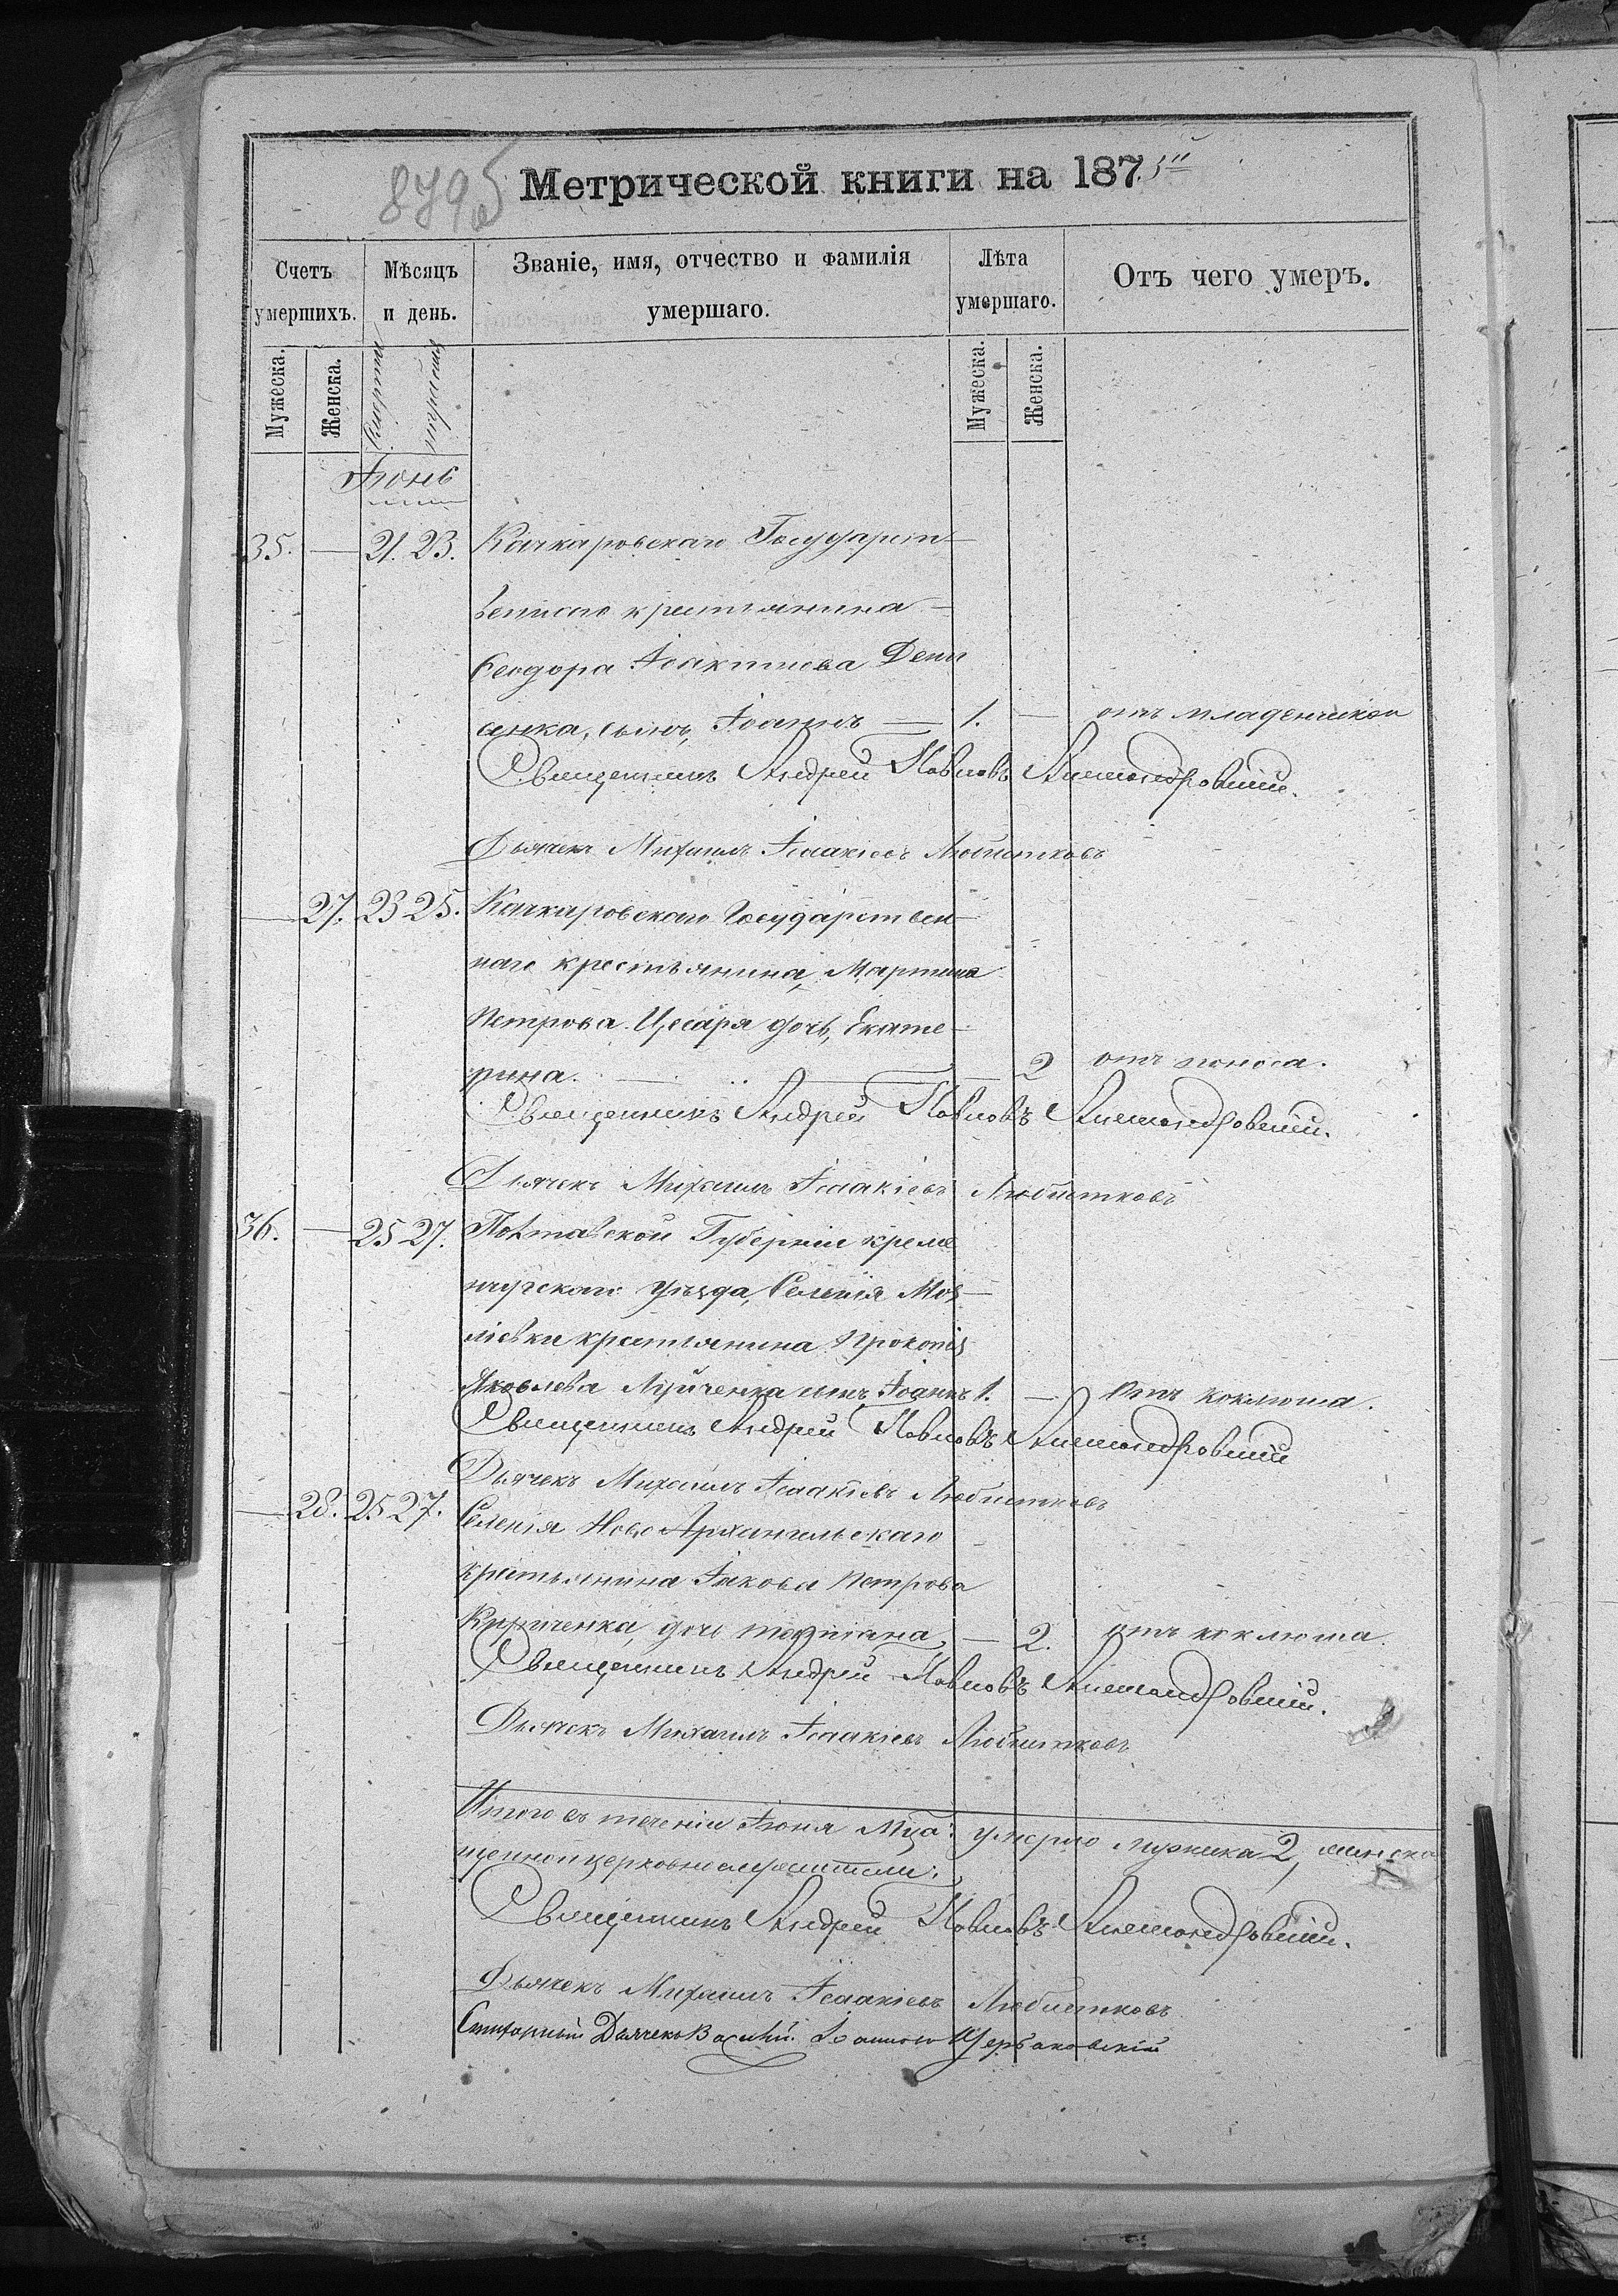 879
Метрической книги на 1875
Счетъ умершихъ.
Мѣсяцъ и день.
Званіе, имя, отчество и фамилія умершаго.
Лѣта умершаго.
Отъ чего умеръ.
Мужеска.
Женска.
смерти
погребенія
Мужеска.
Женска.
Іюнь
35. — 21. 23. Качкаровскаго Государст-
веннаго крестьянина
Феодора Іоакимова Дени
сенка, сынъ, Іоаннъ — 1. — отъ младенческой
Священникъ Андрей Павловъ Александровскій.
Дьячекъ Михаилъ Исаакіевъ Любистковъ
— 27. 23 25. Качкаровскаго Государствен-
наго крестьянина, Мартина
Петрова Цесаря дочь, Екате-
рина. — 2 отъ поноса.
Священникъ Андрей Павловъ Александровскій.
Дьячекъ Михаилъ Исаакіевъ Любистковъ
36. — 25 27. Полтавской Губерніи Креме
нчугскаго уѣзда, Селенія
крестьянина Прокопія
Яковлева сынъ Іоаннъ 1. — отъ коклюша.
Священникъ Андрей Павловъ Александровскій
Дьячекъ Михаилъ Исаакіевъ Любистковъ
— 28. 25 27. Селенія Ново Архангельскаго
крестьянина Іакова Петрова
Кириченка, дочь — 2. отъ коклюша.
Священникъ Андрей Павловъ Александровскій.
Дьячекъ Михаилъ Исаакіевъ Любистковъ
Итого въ теченіи Іюня Мца: умерло мужеска 2, женска
Священникъ Андрей Павловъ Александровскій.
Дьячекъ Михаилъ Исаакіевъ Любистковъ
Стихарный Дьячекъ Василій Іоанновъ Щербаковскій